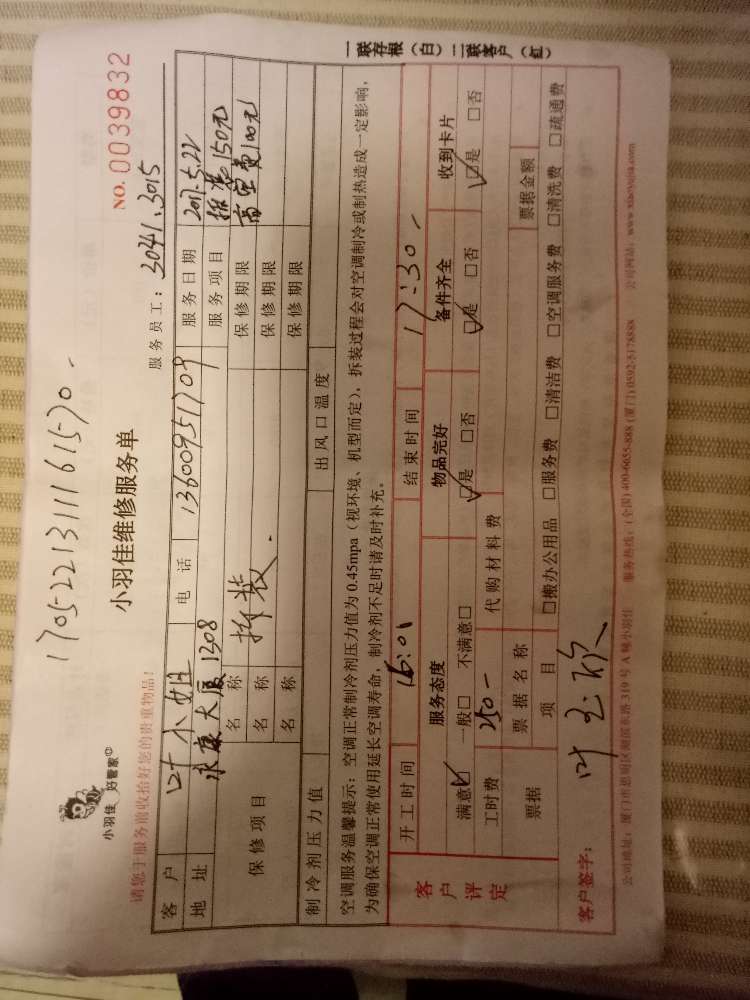 1705-221311161570.
小羽佳 好管家
小羽佳维修服务单
NO. 0039832
请您于服务前收拾好您的贵重物品!
服务员工: 3041.3015
客户 叶小姐 电话 13600951709 服务日期 2017.5.22
地址 永康大厦1308 服务项目 拆装150元
高空费100元
保修项目 名称 拆装. 保修期限
名称 保修期限
名称 保修期限
制冷剂压力值 出风口温度
空调服务温馨提示:空调正常制冷剂压力值为0.45mpa(视环境、机型而定),拆装过程会对空调制冷或制热造成一定影响,
为确保空调正常使用延长空调寿命,制冷剂不足时请及时补充。
客户评定
开工时间 16:01 结束时间 17:30
服务态度 物品完好 备件齐全 收到卡片
满意☑ 一般□ 不满意□ ☑是 □否 ☑是 □否 ☑是 □否
工时费 250- 代购材料费
票据 票据名称 票据金额
项目 □搬办公用品 □服务费 □清洁费 □空调服务费 □清洗费 □疏通费
客户签字:
公司地址:厦门市思明区湖滨东路319号A幢小羽佳 服务热线:(全国)400-6055-888 (厦门)0592-5178888 公司网站:www.xiaoyujia.com
一联存根(白)二联客户(红)